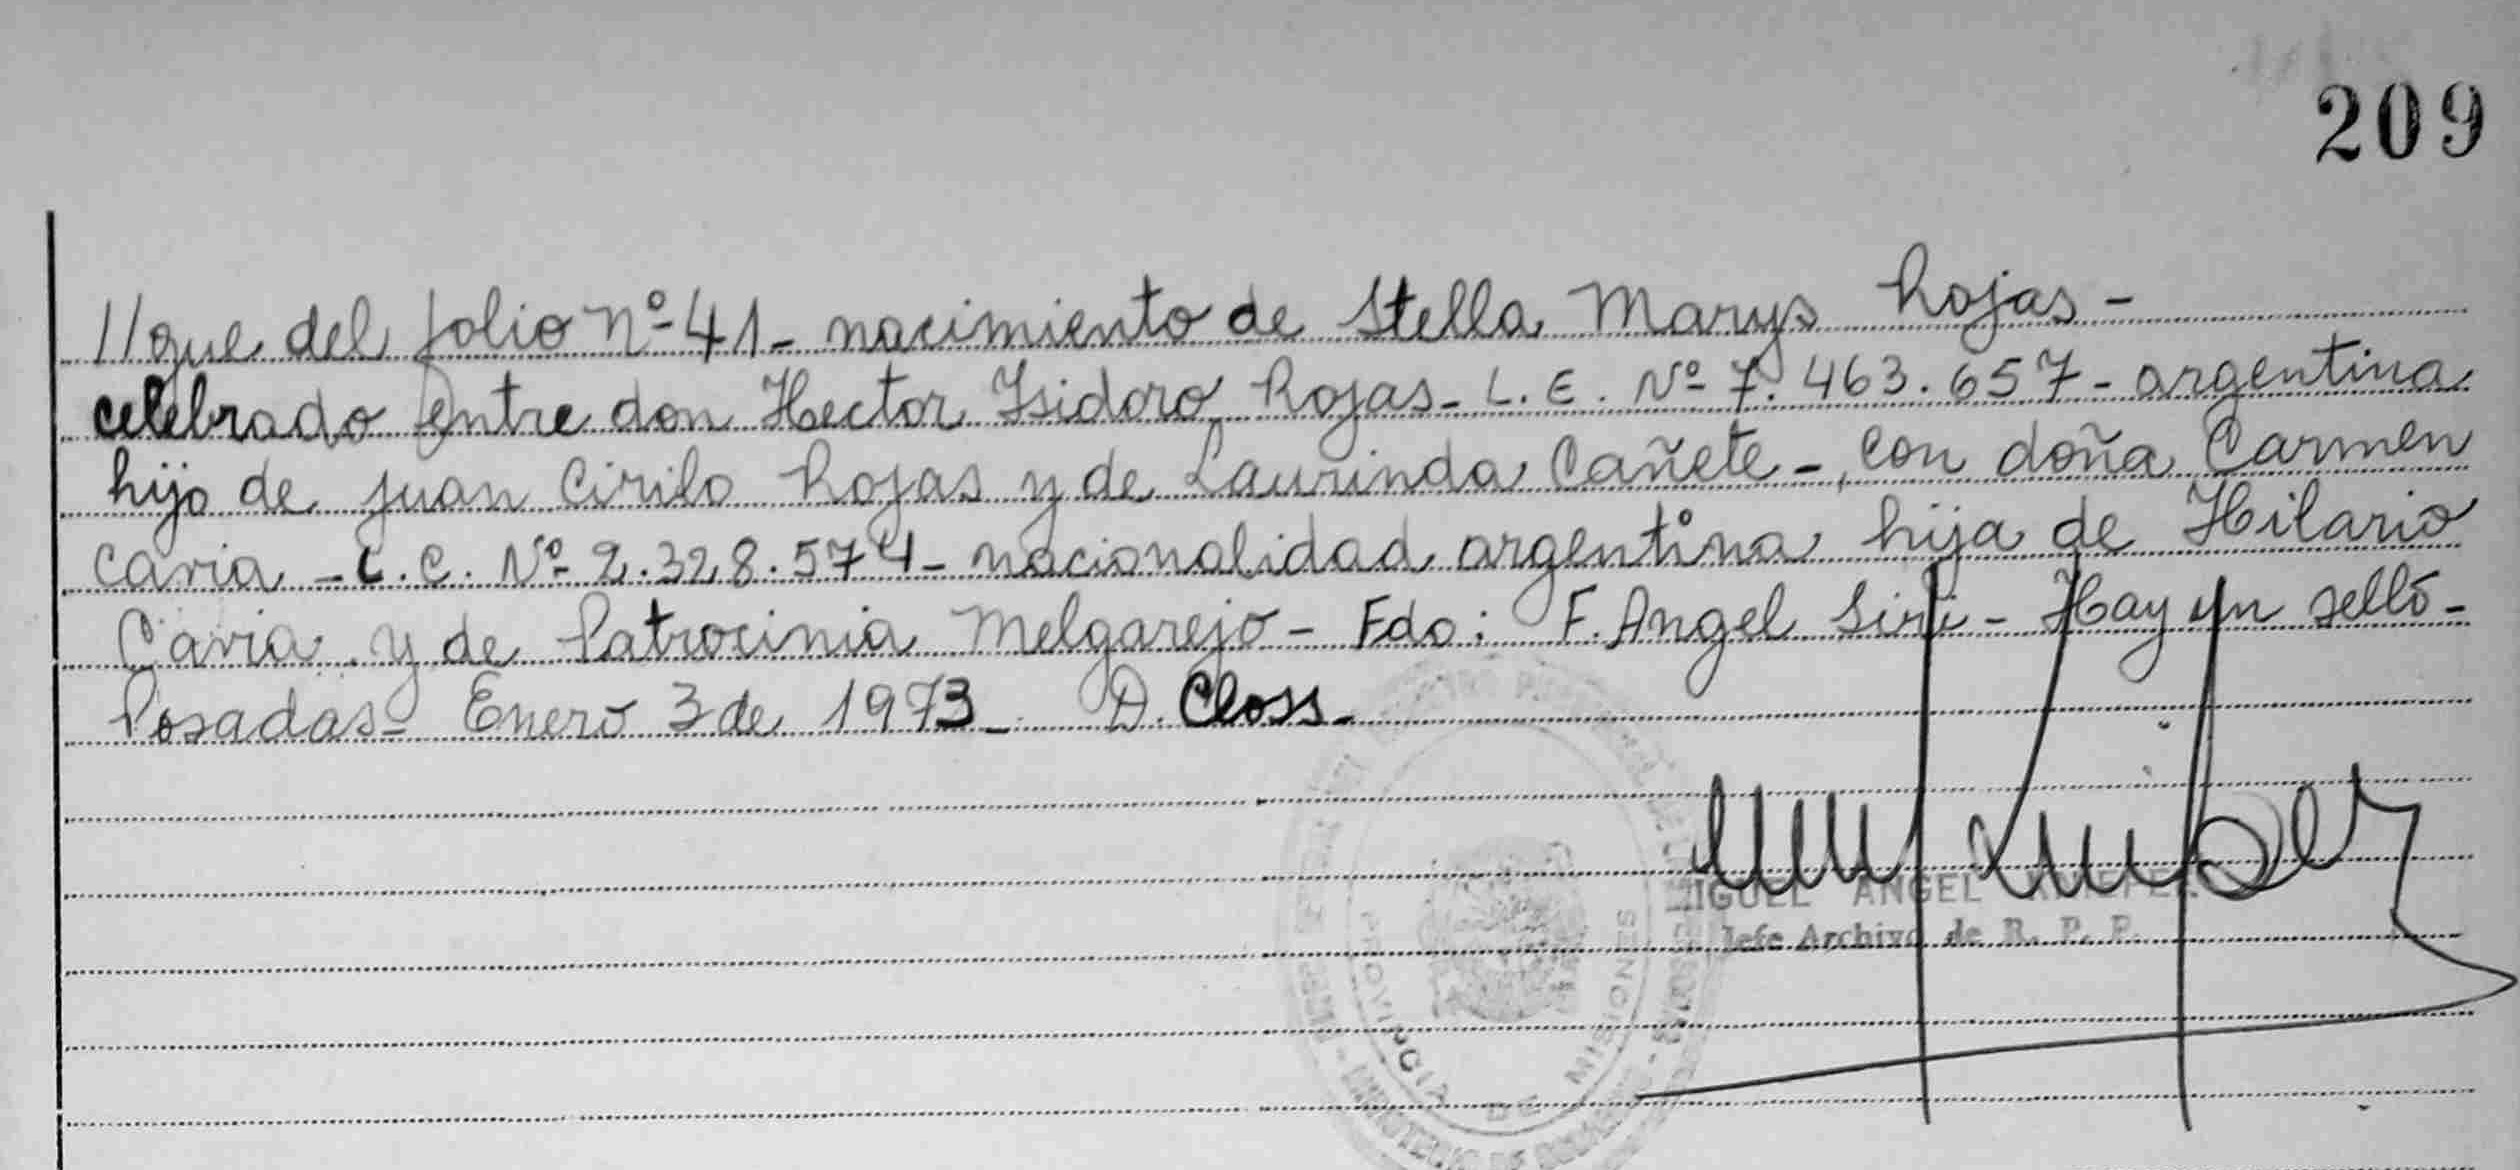 209
//que del folio Nº 41 - nacimiento de Stella Marys Rojas -
celebrado entre don Hector Isidoro Rojas - L. E. Nº 7.463.657 - argentina
hijo de Juan Cirilo Rojas y de Laurinda Cañete -, con doña Carmen
Cavia - L. C. Nº 2.328.574 - nacionalidad argentina hija de Hilario
Cavia y de Patrocinia Melgarejo - Fdo: F. Angel Siri - Hay un sello -
Posadas - Enero 3 de 1973 - D. Closs -
MIGUEL ANGEL
Jefe Archivo de R. P. P.
PROVINCIA DE MISIONES